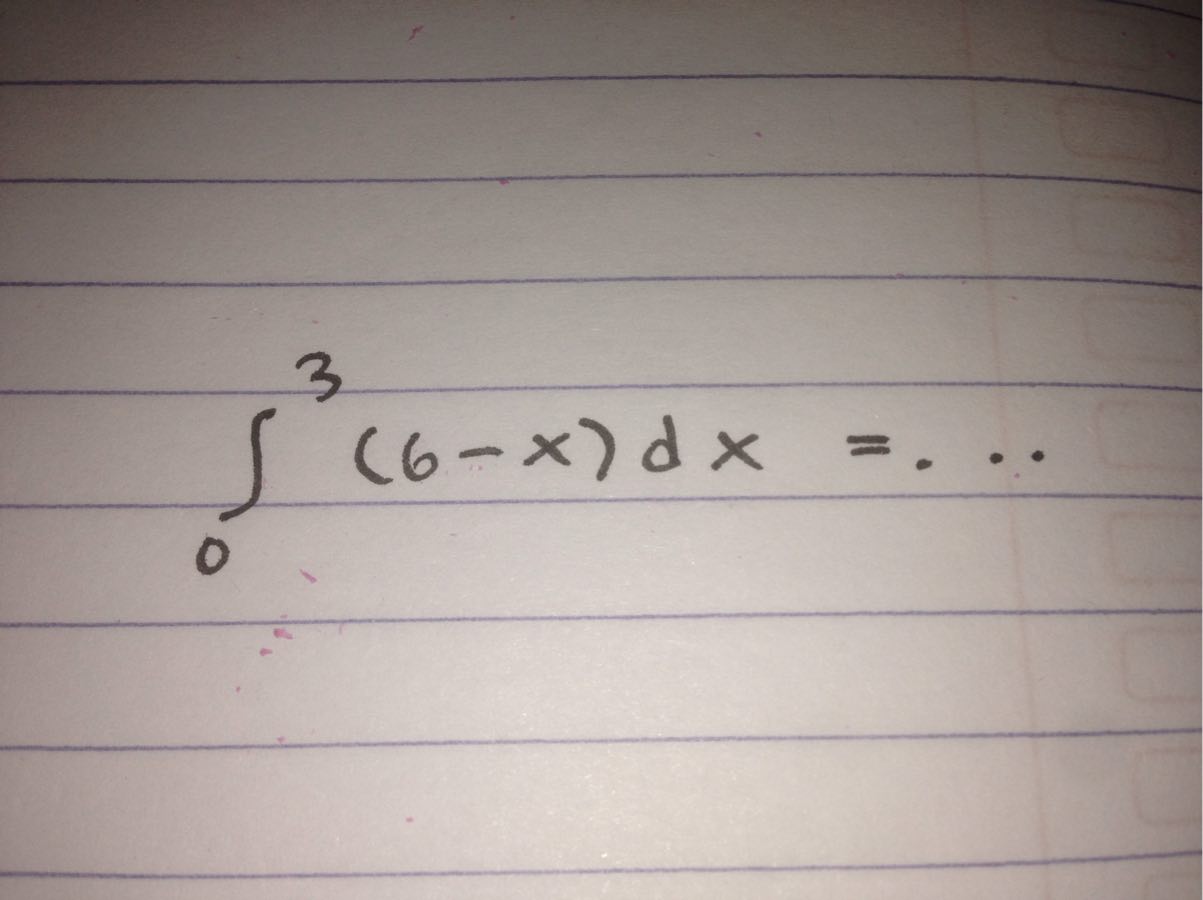 ∫₀³ (6-x)dx = ...